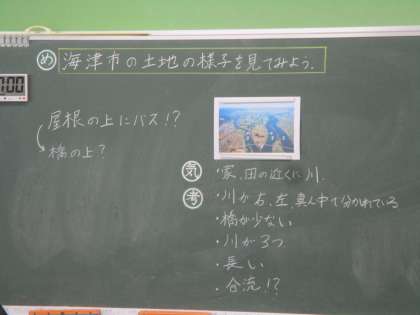 め 海津市の土地の様子を見てみよう.
:00
屋根の上にバス!?
橋の上?
気 ・家、田の近くに川.
考 ・川が右、左、真ん中で分かれている
・橋が少ない
・川が3つ
・長い
・合流!?